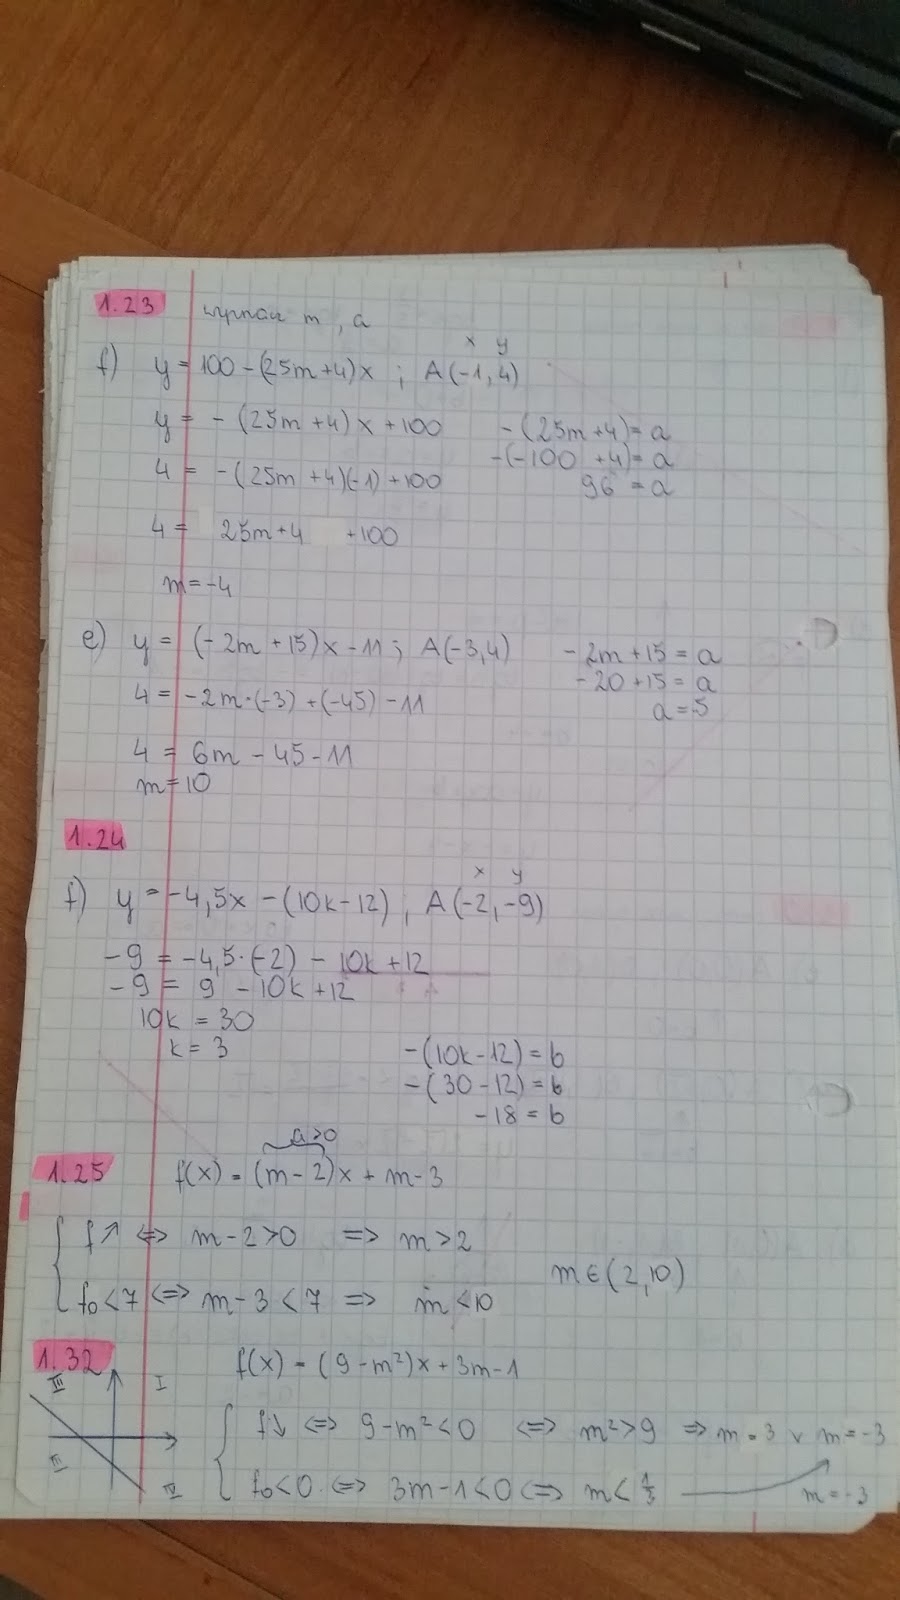 1.23
m, a
x y
f) y = 100 - (25m+4)x ; A(-1,4)
y = -(25m+4)x +100    -(25m+4)= a
4 = -(25m+4)(-1)+100    -(-100+4)= a
96 = a
4 = 25m+4 +100
m=-4
e) y = (-2m+15)x-11; A(-3,4)    -2m+15 = a
4 = -2m·(-3) +(-45) -11    -20+15 = a
a=-5
4 = 6m - 45-11
m=10
1.24
x y
f) y = -4,5x -(10k-12) ; A(-2,-9)
-9 = -4,5·(-2) - 10k+12
-9 = 9 - 10k+12
10k = 30
k = 3    -(10k-12) = b
-(30-12) = b
-18 = b
a>0
1.25    f(x) = (m-2)x + m-3
f↗ ⇔ m-2>0 ⇒ m>2
m∈(2,10)
f0<7 ⇔ m-3<7 ⇒ m<10
1.32    f(x) = (9-m²)x+3m-1
II I
f↘ ⇔ 9-m²<0 ⇔ m²>9 ⇒ m=3 v m=-3
III IV
f0<0 ⇔ 3m-1<0 ⇔ m<1/3    m=-3